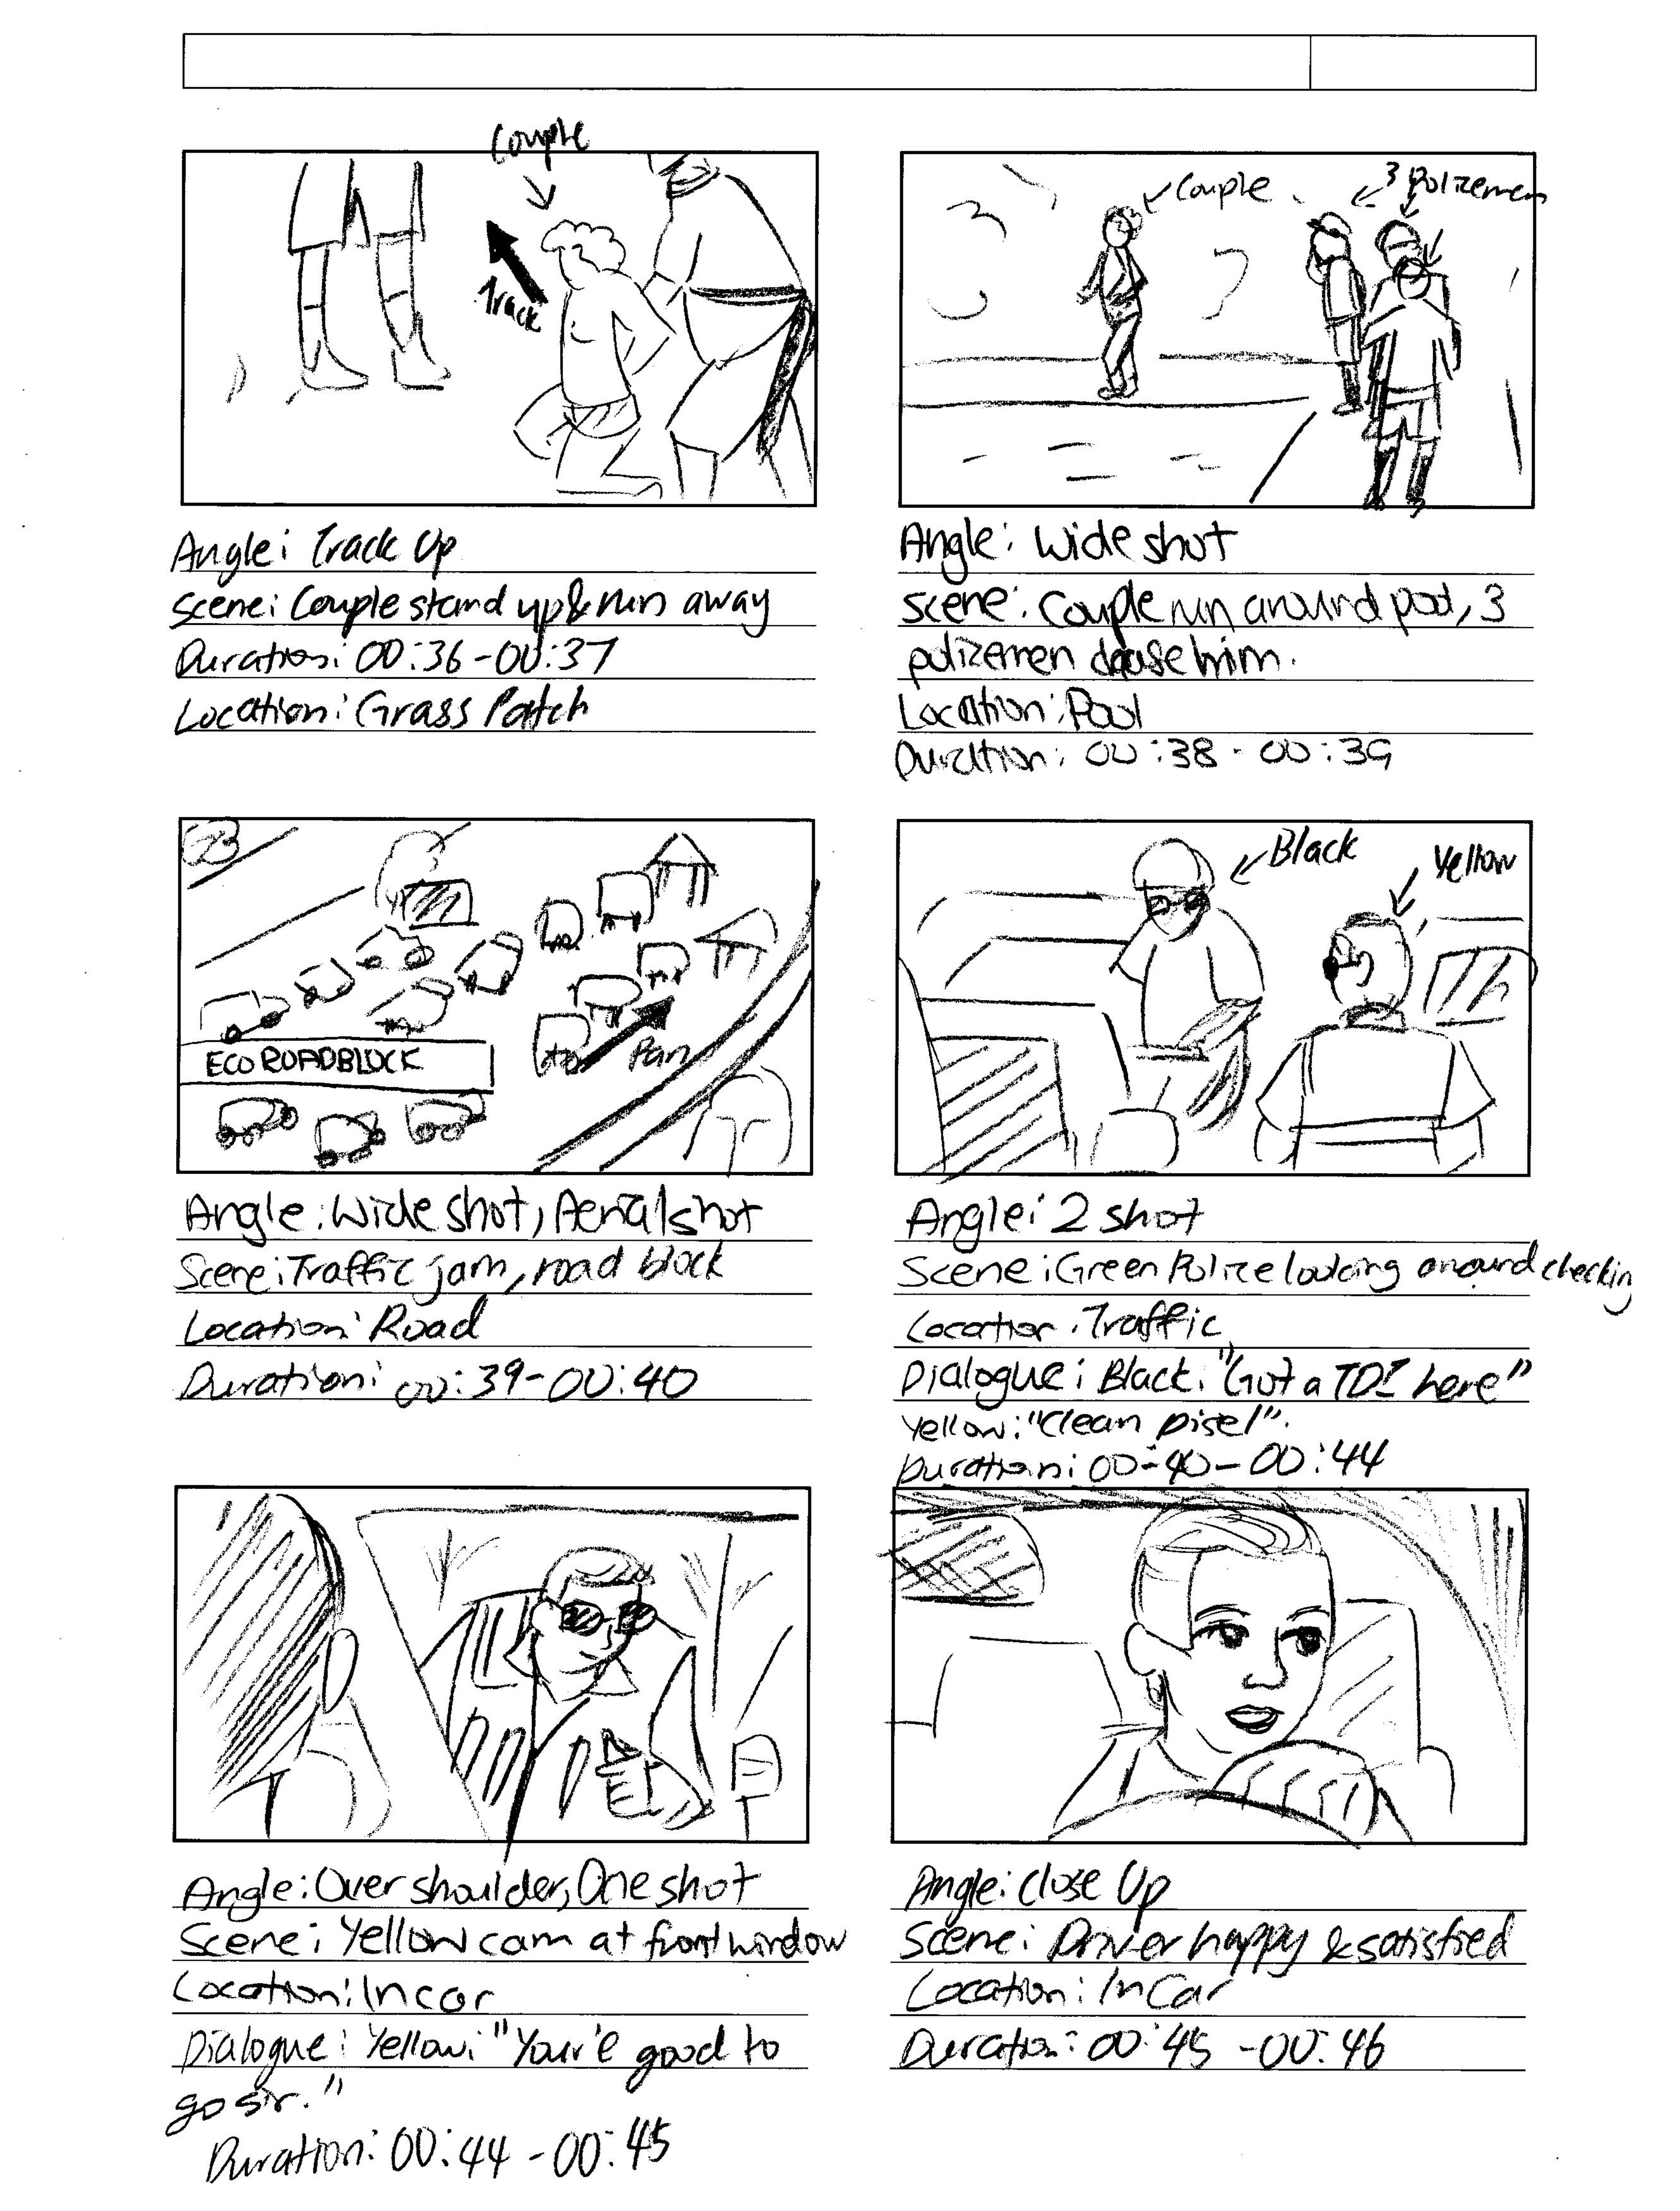 Couple
Track
Angle: Track Up
Scene: Couple stand up & run away
Duration: 00:36-00:37
Location: Grass Patch
Couple
3 Polizemen
Angle: Wide shot
Scene: Couple run around pool, 3
polizemen chase him.
Location: Pool
Duration: 00:38 - 00:39
23
ECO ROADBLOCK
Pan
Angle: Wide shot, Aerial shot
Scene: Traffic jam, road block
Location: Road
Duration: 00:39-00:40
Black
Yellow
Angle: 2 shot
Scene: Green Polize looking around checking
Location: Traffic
Dialogue: Black: "Got a TDI here"
Yellow: "Clean Disel".
Duration: 00-40-00:44
Angle: Over shoulder, One shot
Scene: Yellow cam at front window
Location: In car
Dialogue: Yellow: "Your'e good to
go sir."
Duration: 00:44-00:45
Angle: Close Up
Scene: Driver happy & satisfied
Location: In Car
Duration: 00:45-00:46